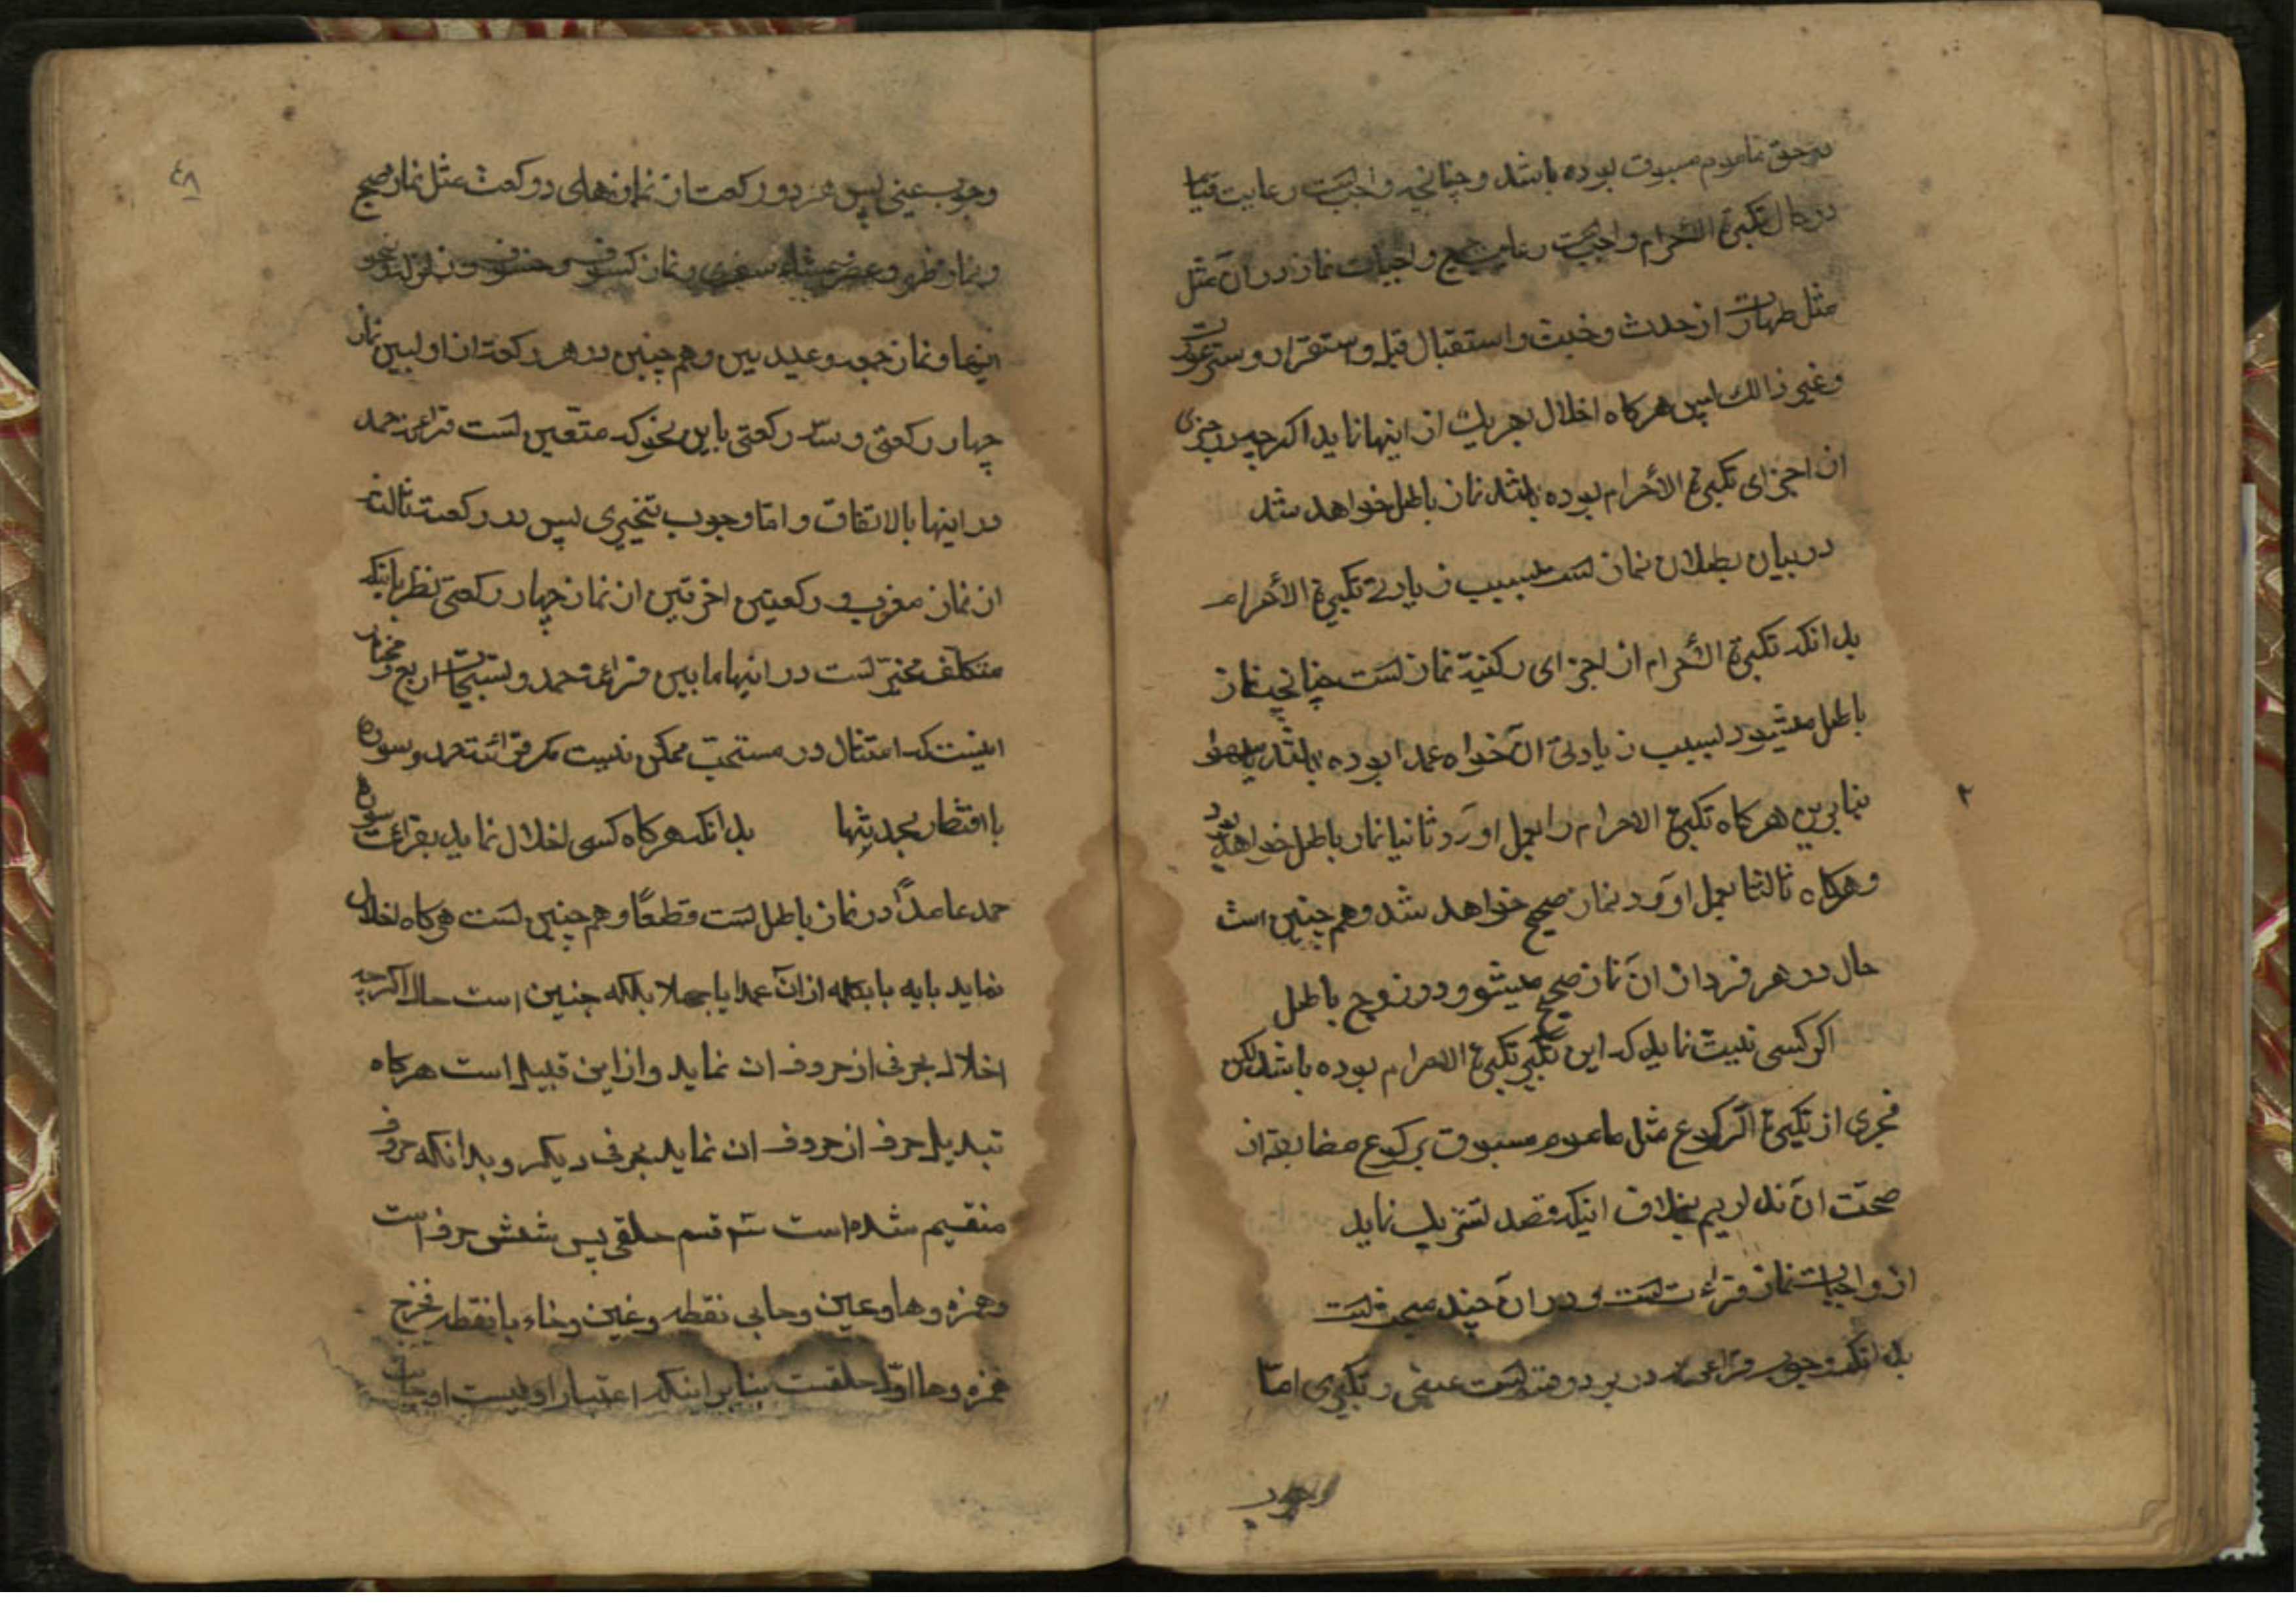 در حق ماموم مسبوق بوده باشد و چنانچه واجبست رعایت قیام
در حال تکبیرة الاحرام واجبست رعایت جمیع واجبات نماز در آن مثل
مثل طهارت از حدث و خبث و استقبال قبله و استقرار و ستر عورت
و غیر ذالک پس هرکاه اخلال بهریک از اینها نماید اکرچه در جزئی
از اجزای تکبیرة الأحرام بوده باشد نماز باطل خواهد شد
در بیان بطلان نماز است بسبب زیادتے تکبیرة الأحرام
بدانکه تکبیرة الأحرام از اجزای رکنیّة نماز است چنانچه نماز
باطل میشود بسبب زیادتی آن خواه عمدا بوده باشد یا سهوا
بنابرین هرکاه تکبیرة الاحرام را بعمل اورد ثانیا نماز باطل خواهد بود
و هرکاه ثالثا بعمل اورد نماز صحیح خواهد شد و هم چنین است
حال در هر فرد از ان نماز صحیح میشود و در زوج باطل
اکر کسی نیت نماید که این تکبیر تکبیرة الاحرام بوده باشد لکن
مجزی از تکبیرة الرکوع مثل ماموم مسبوق برکوع مضایقه از
صحّت ان نداریم بخلاف اینکه قصد تشریک نماید
از واجبات نماز قرائت است و در ان چند مبحث است
بدانکه وجوب قرائت در بر دو قسم است عینی و تخییری امّا
وجوب
٤٨
وجوب عینی پس در دو رکعت از نمازهای دو رکعت مثل نماز صبح
و نماز ظهر و عصر و عشاء سفری و نماز کسوف و خسوف و زلزله و نحو
اینها و نماز جمعه و عیدین و هم چنین در هر رکعت از اولیین نماز
چهار رکعتی و سه رکعتی باین نحو که متعین است قرائت حمد
در اینها بالاتفاق و امّا وجوب تخییری پس در رکعت ثالثه
از نماز مغرب و رکعتین اخرتین از نماز چهار رکعتی نظر باینکه
متکلّف مخیّر است در اینها ما بین قرائت حمد و تسبیحات اربع و مختار
اینست که امتثال در مستحب ممکن نیست مکر قرائت حمد و سوره
با اقتضار بحدیثها بدانکه هرکاه کسی اخلال نماید بقرائت سوره
حمد عامداً در نماز باطل است قطعًا و هم چنین است هرکاه اخلال
نماید بایه یا بکلمه از ان عمدا یا جهلا بلکه چنین است حال اکرچه
اخلال بحرفی از حروف ان نماید و از این قبیل است هرکاه
تبدیل حرف از حروف ان نماید بحرفی دیکر و بدانکه حروف
منقسم شده است قسم حلقی پس شش حرف است
و همزه و ها و عین و حا بی نقطه و غین و خاء با نقطه مخرج
همزه و ها اوّل حلقست بنا بر اینکه اعتبار اولیت از جانب